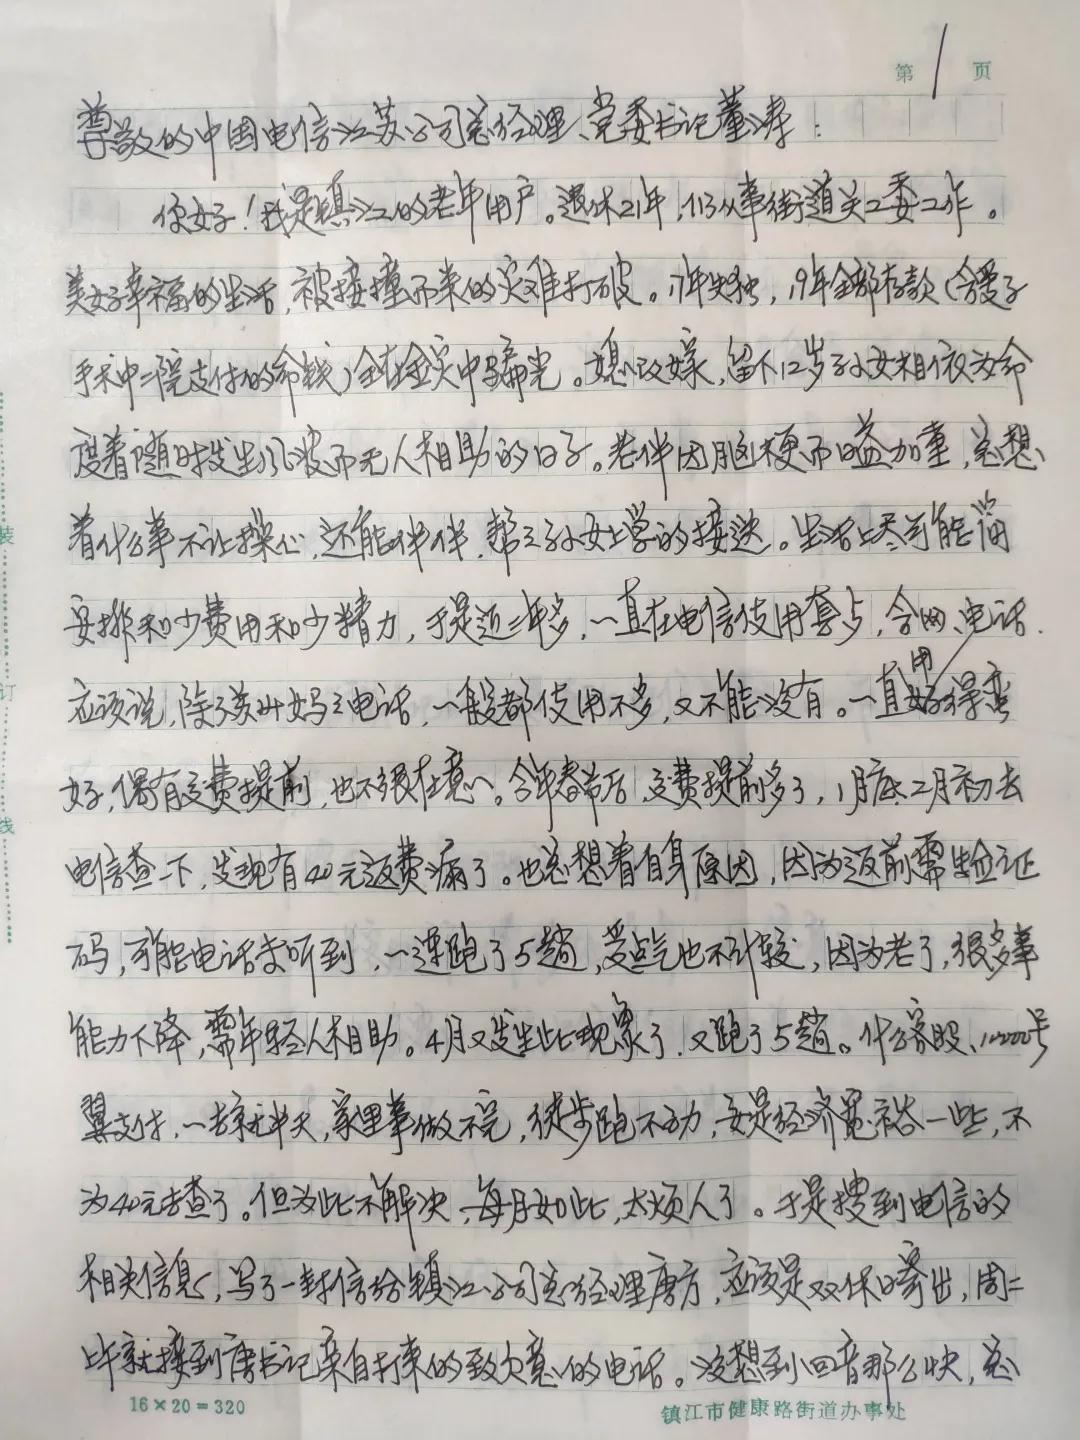 第 1 页
尊敬的中国电信江苏公司总经理、党委书记董涛：
你好！我是镇江的老年用户。退休21年，仍从事街道关工委工作。
美好幸福的生活，被接撞而来的灾难打破。17年失独，19年全部存款（含爱子
手术中二院支付的命钱）全在金实中骗光。媳改嫁，留下12岁孙女相依为命
度着随时发生风波而无人相助的日子。老伴因脑梗而日益加重，总想
着什么事不让操心，还能伴伴，帮了孙女上学的接送。生活上尽可能简
安排和少费用和少精力，于是近三年多，一直在电信使用套占，含网、电话.
应该说，除了孩叫妈之电话，一般都使用不多，又不能没有。一直用得蛮
好，偶有交费提前，也不很在意。今年春节后，交费提前多了，1月底2月初去
电信查一下，发现有40元返费漏了。也总想着自身原因，因为返前需验证
码，可能电话未听到，一连跑了5趟，受点气也不计较，因为老了，很多事
能力下降，需年轻人相助。4月又发生此现象了，又跑了5趟。什么客服、10000号
翼支付，一去就半天，家里事做不完，徒步跑不动，要是经济宽裕一些，不
为40元去查了。但为此不解决，每月如此，太烦人了。于是搜到电信的
相关信息，写了一封信给镇江公司总经理唐方，应该是双休日寄出，周二
上午就接到唐书记亲自打来的致欠意的电话。没想到回音那么快，总
16×20=320
镇江市健康路街道办事处
装
订
线